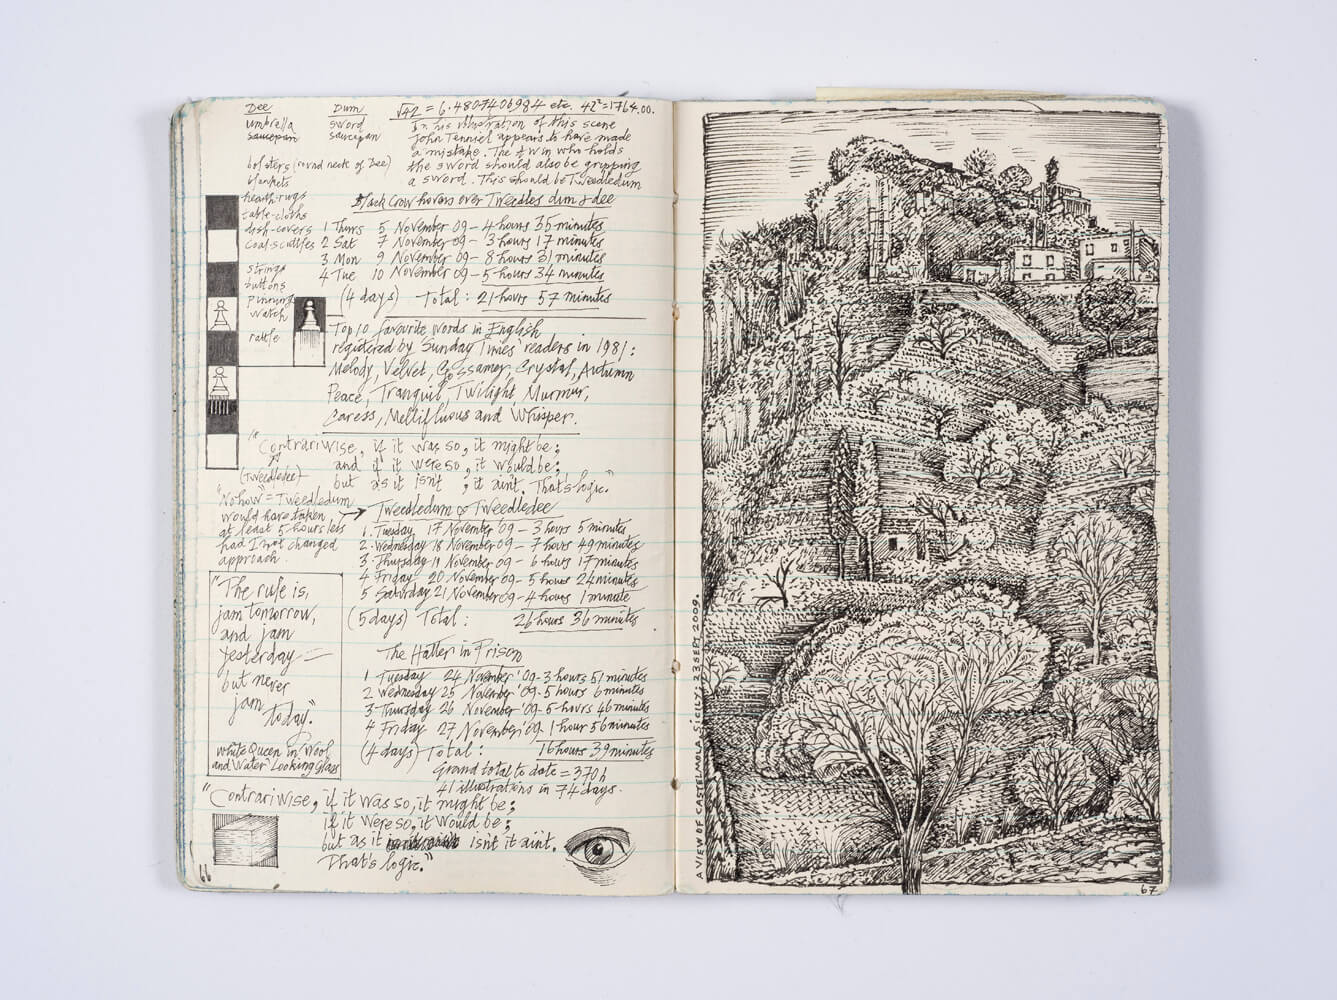 Dee Dum √42 = 6.4807406984 etc. 42²=1764.00.
umbrella sword In his illustration of this scene
saucepan saucepan John Tenniel appears to have made
a mistake. The twin who holds
bolsters (round neck of Dee) the sword should also be gripping
blankets a sword. This should be Tweedledum
hearth-rugs Black Crow hovers over Tweedles dum & dee
table-cloths
dish-covers 1 Thurs 5 November 09 – 4 hours 35 minutes
coal-scuttles 2 Sat 7 November 09 – 3 hours 17 minutes
3 Mon 9 November 09 – 8 hours 31 minutes
strings 4 Tue 10 November 09 – 5 hours 34 minutes
buttons
(4 days) Total: 21 hours 57 minutes
watch
rattle
Top 10 favourite words in English
registered by Sunday Times' readers in 1981:
Melody, Velvet, Gossamer, Crystal, Autumn
Peace, Tranquil, Twilight, Murmur,
Caress, Mellifluous and Whisper.
"Contrariwise, if it was so, it might be;
and if it were so, it would be;
(Tweedledee) but as it isn't ; it aint. That's logic."
"Nohow" = Tweedledum
would have taken Tweedledum & Tweedledee
at least 5 hours less
had I not changed
approach.
1. Tuesday 17 November '09 – 3 hours 5 minutes
2. Wednesday 18 November 09 – 7 hours 49 minutes
3. Thursday 19 November 09 – 6 hours 17 minutes
4 Friday 20 November 09 – 5 hours 24 minutes
5 Saturday 21 November 09 – 4 hours 1 minute
(5 days) Total: 26 hours 36 minutes
"The rule is,
jam tomorrow,
and jam
yesterday –
but never
jam
today".
White Queen in Wool
and Water Looking Glass
The Hatter in Prison
1 Tuesday 24 November '09 – 3 hours 51 minutes
2 Wednesday 25 November '09 – 5 hours 6 minutes
3 Thursday 26 November '09 – 5 hours 46 minutes
4 Friday 27 November '09 1 hour 56 minutes
(4 days) Total: 16 hours 39 minutes
Grand total to date = 370h
41 illustrations in 74 days.
"Contrariwise, if it was so, it might be;
if it were so, it would be;
but as it isn't it aint.
That's logic."
66
A VIEW OF CASTELMOLA. SICILY: 23 SEP 2009.
67